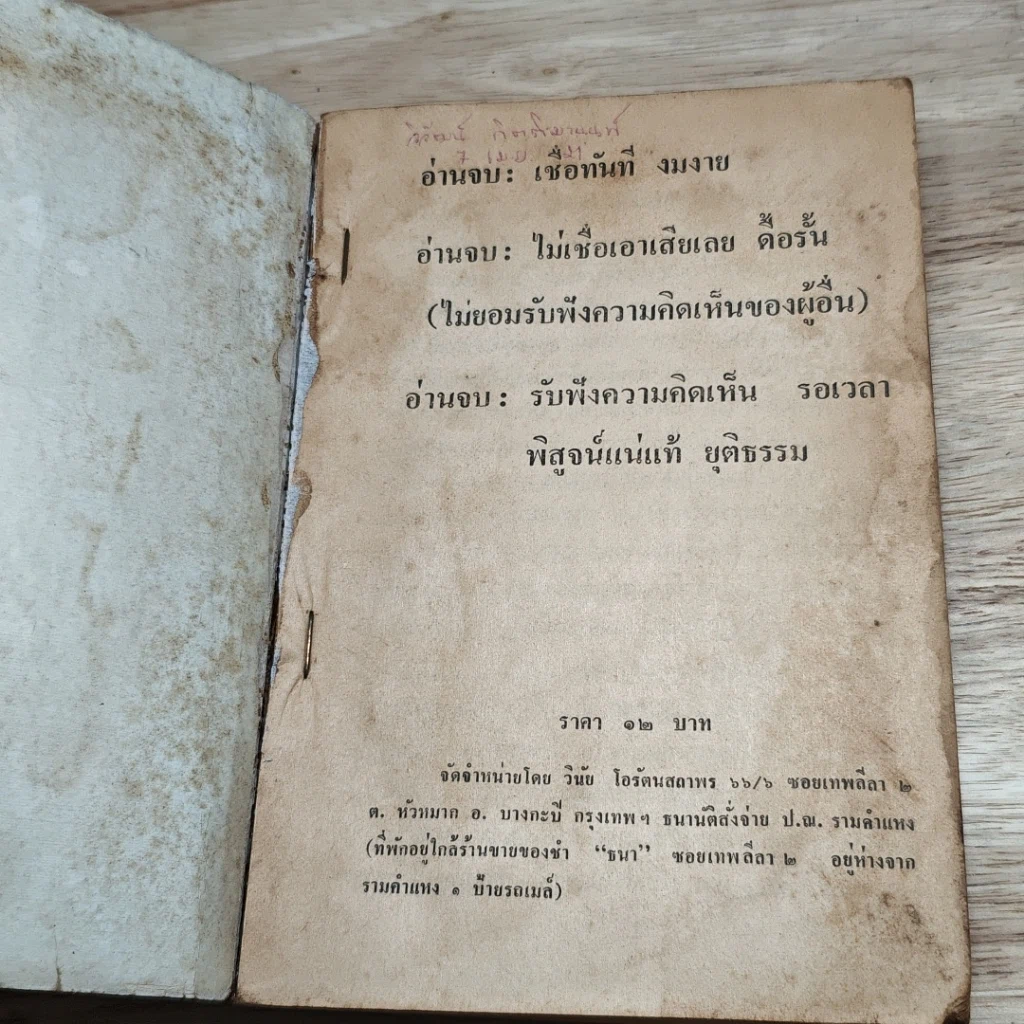 กิตติมานนท์
7 เม.ย. 21
อ่านจบ: เชื่อทันที งมงาย
อ่านจบ: ไม่เชื่อเอาเสียเลย ดื้อรั้น
(ไม่ยอมรับฟังความคิดเห็นของผู้อื่น)
อ่านจบ: รับฟังความคิดเห็น รอเวลา
พิสูจน์แน่แท้ ยุติธรรม
ราคา ๑๒ บาท
จัดจำหน่ายโดย วินัย โอรัตนสถาพร ๖๖/๖ ซอยเทพลีลา ๒
ต. หัวหมาก อ. บางกะปิ กรุงเทพฯ ธนานัติสั่งจ่าย ป.ณ. รามคำแหง
(ที่พักอยู่ใกล้ร้านขายของชำ “ธนา” ซอยเทพลีลา ๒ อยู่ห่างจาก
รามคำแหง ๑ ป้ายรถเมล์)